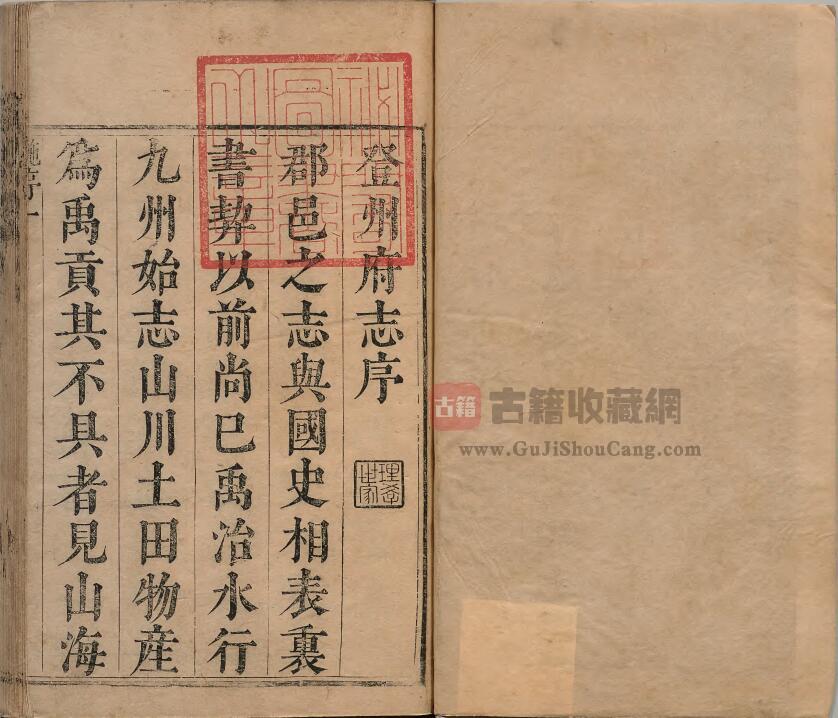 登州府志序
理學世家
郡邑之志與國史相表裏
書契以前尚已禹治水行
九州始志山川土田物産
為禹貢其不具者見山海
古籍
古籍收藏網
www.GuJiShouCang.com